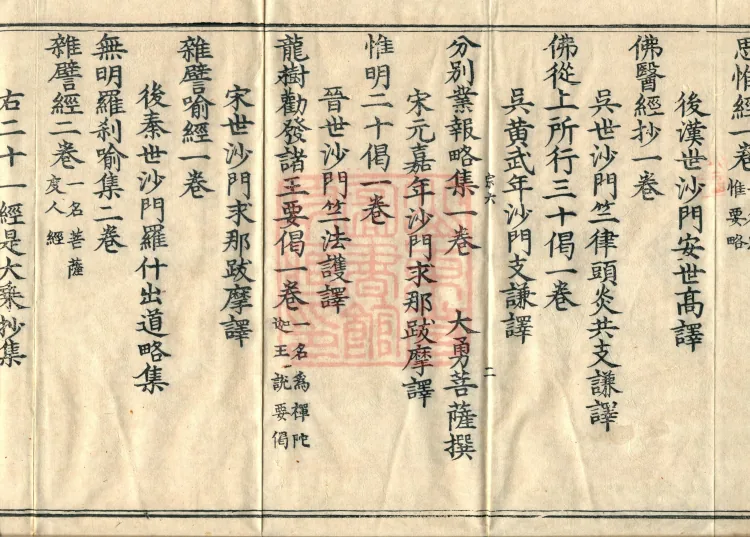 思惟經一卷
惟要略
後漢世沙門安世高譯
佛醫經抄一卷
吳世沙門竺律頭炎共支謙譯
佛從上所行三十偈一卷
吳黃武年沙門支謙譯
宗六 二
分別業報略集一卷 大勇菩薩撰
宋元嘉年沙門求那跋摩譯
惟明二十偈一卷
晉世沙門竺法護譯
龍樹勸發諸王要偈一卷 一名為禪陀迦王說要偈
宋世沙門求那跋摩譯
雜譬喻經一卷
後秦世沙門羅什出道略集
無明羅刹喻集二卷
雜譬經二卷 一名菩薩度人經
右二十一經是大乘抄集